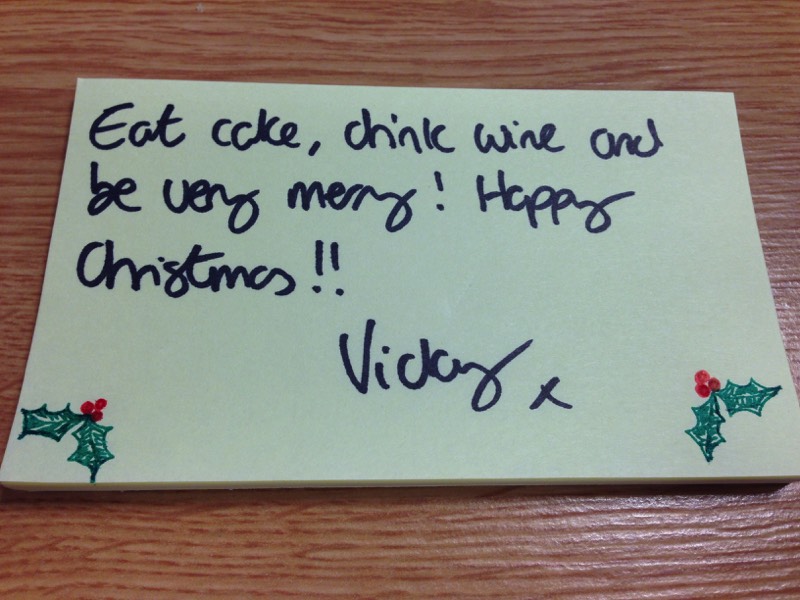 Eat cake, drink wine and
be very merry! Happy
Christmas!!
Vicky x